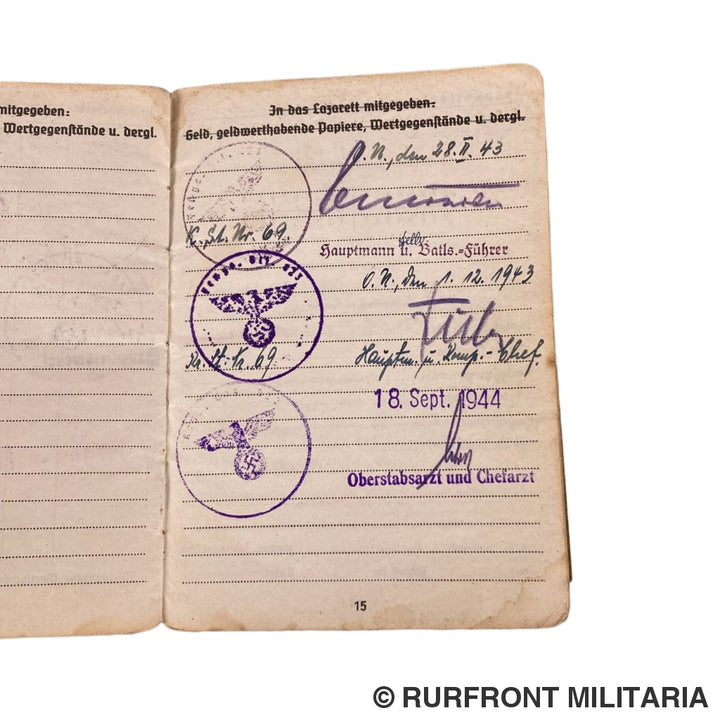 mitgegeben:
Wertgegenstände u. dergl.
In das Lazarett mitgegeben:
Geld, geldwerthabende Papiere, Wertgegenstände u. dergl.
O.N., den 28.II.43
K. St. Nr. 69.
stellv.
Hauptmann u. Batls.-Führer
O.N., den 1.12.1943
Kr. St. Nr. 69
Hauptm. u. Komp.-Chef.
18. Sept. 1944
Oberstabsarzt und Chefarzt
15
© RURFRONT MILITARIA